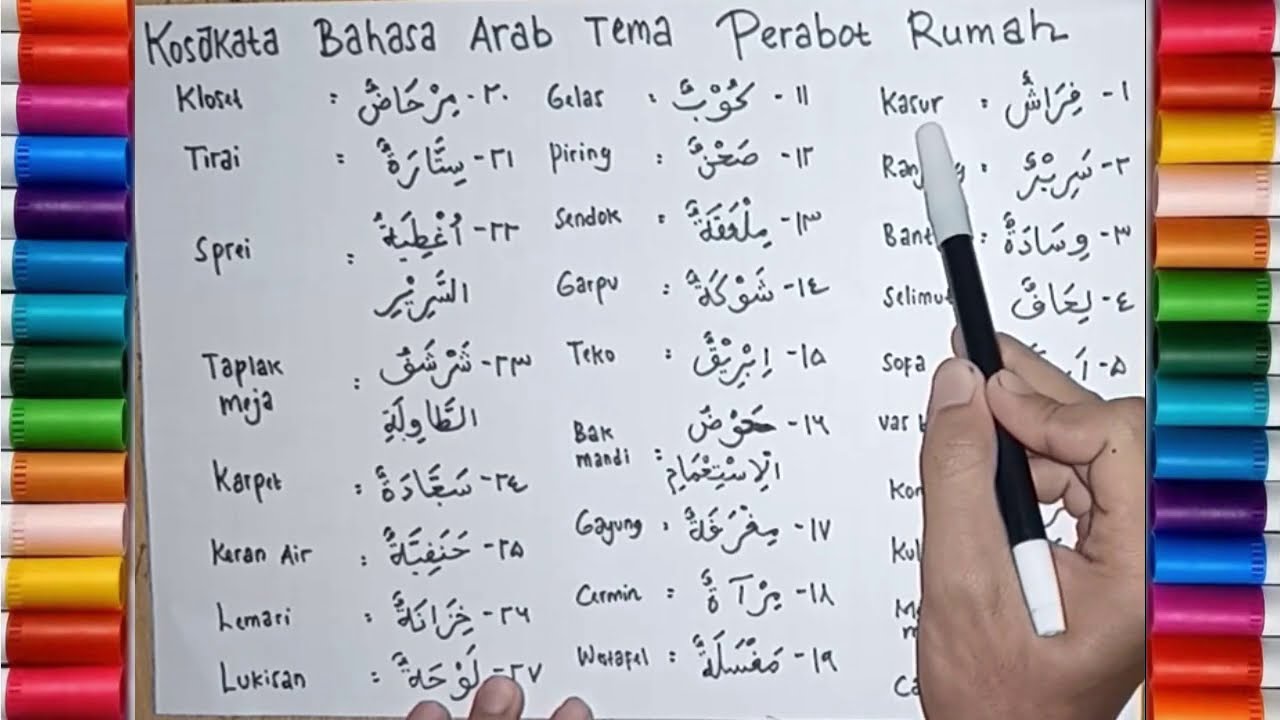 Kosakata Bahasa Arab Tema Perabot Rumah
١- فِرَاشٌ : Kasur
٢- سَرِيْرٌ :
٣- وِسَادَةٌ :
٤- لِحَافٌ Selimut
٥- Sofa
١١- كُوْبٌ : Gelas
١٢- صَحْنٌ : Piring
١٣- مِلْعَقَةٌ : Sendok
١٤- شَوْكَةٌ : Garpu
١٥- اِبْرِيْقٌ : Teko
١٦- حَوْضُ : Bak
الْاِسْتِحْمَامِ mandi
١٧- مِغْرَفَةٌ : Gayung
١٨- مِرْآةٌ : Cermin
١٩- مَغْسَلَةٌ : Wastafel
٢٠- مِرْحَاضٌ : Kloset
٢١- سِتَّارَةٌ : Tirai
٢٢- اُغْطِيَةُ : Sprei
السَّرِيْرِ
٢٣- شَرْشَفُ : Taplak
الطَّاوِلَةِ meja
٢٤- سَجَّادَةٌ : Karpet
٢٥- حَنَفِيَّةٌ : Keran Air
٢٦- خِزَانَةٌ : Lemari
٢٧- لَوْحَةٌ : Lukisan